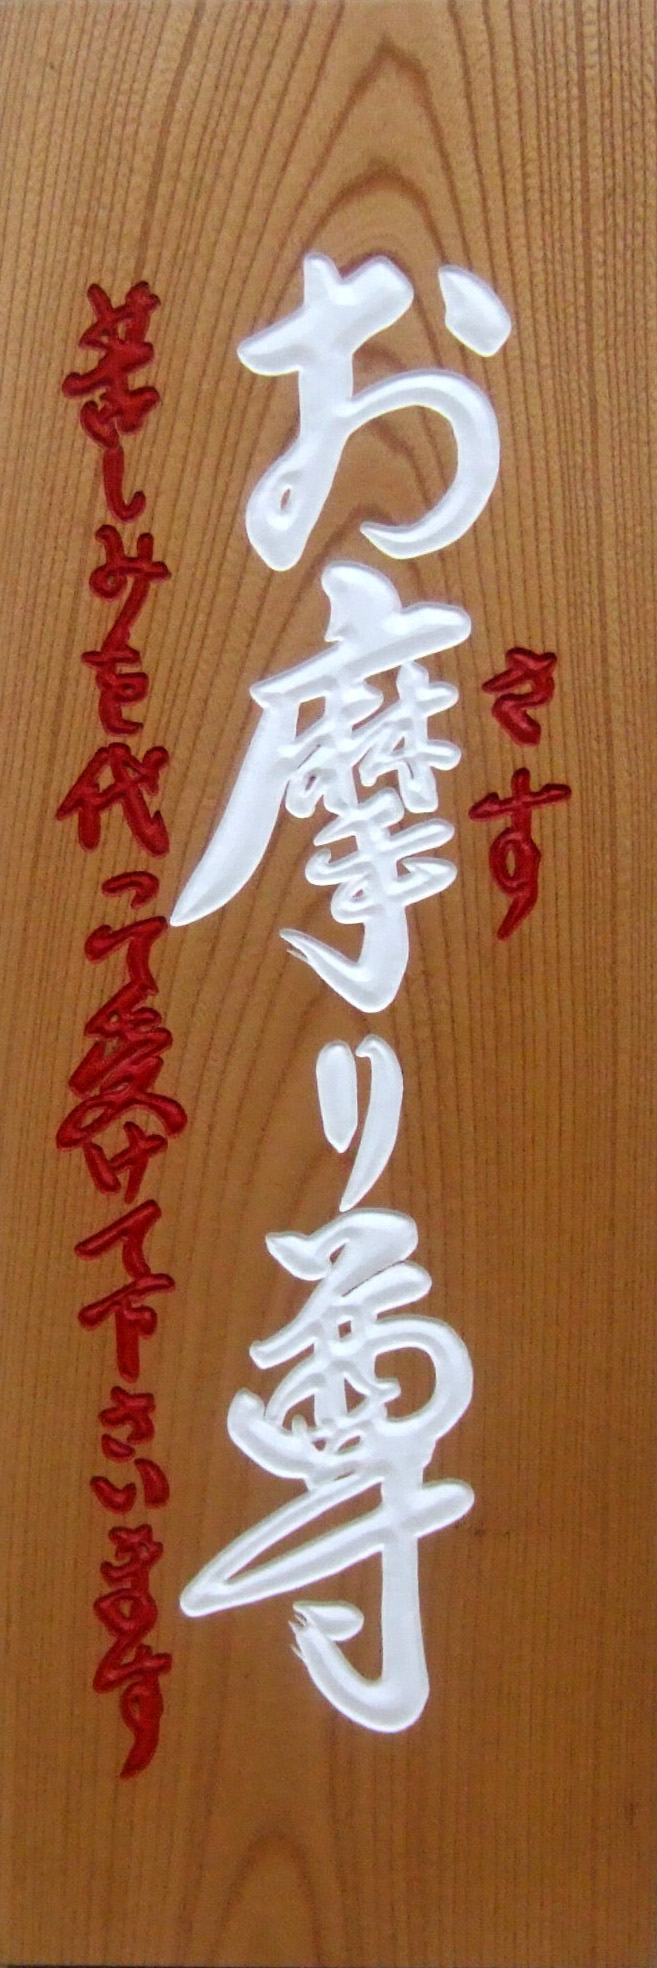 さす
お摩り尊
苦しみを代って受けて下さいます